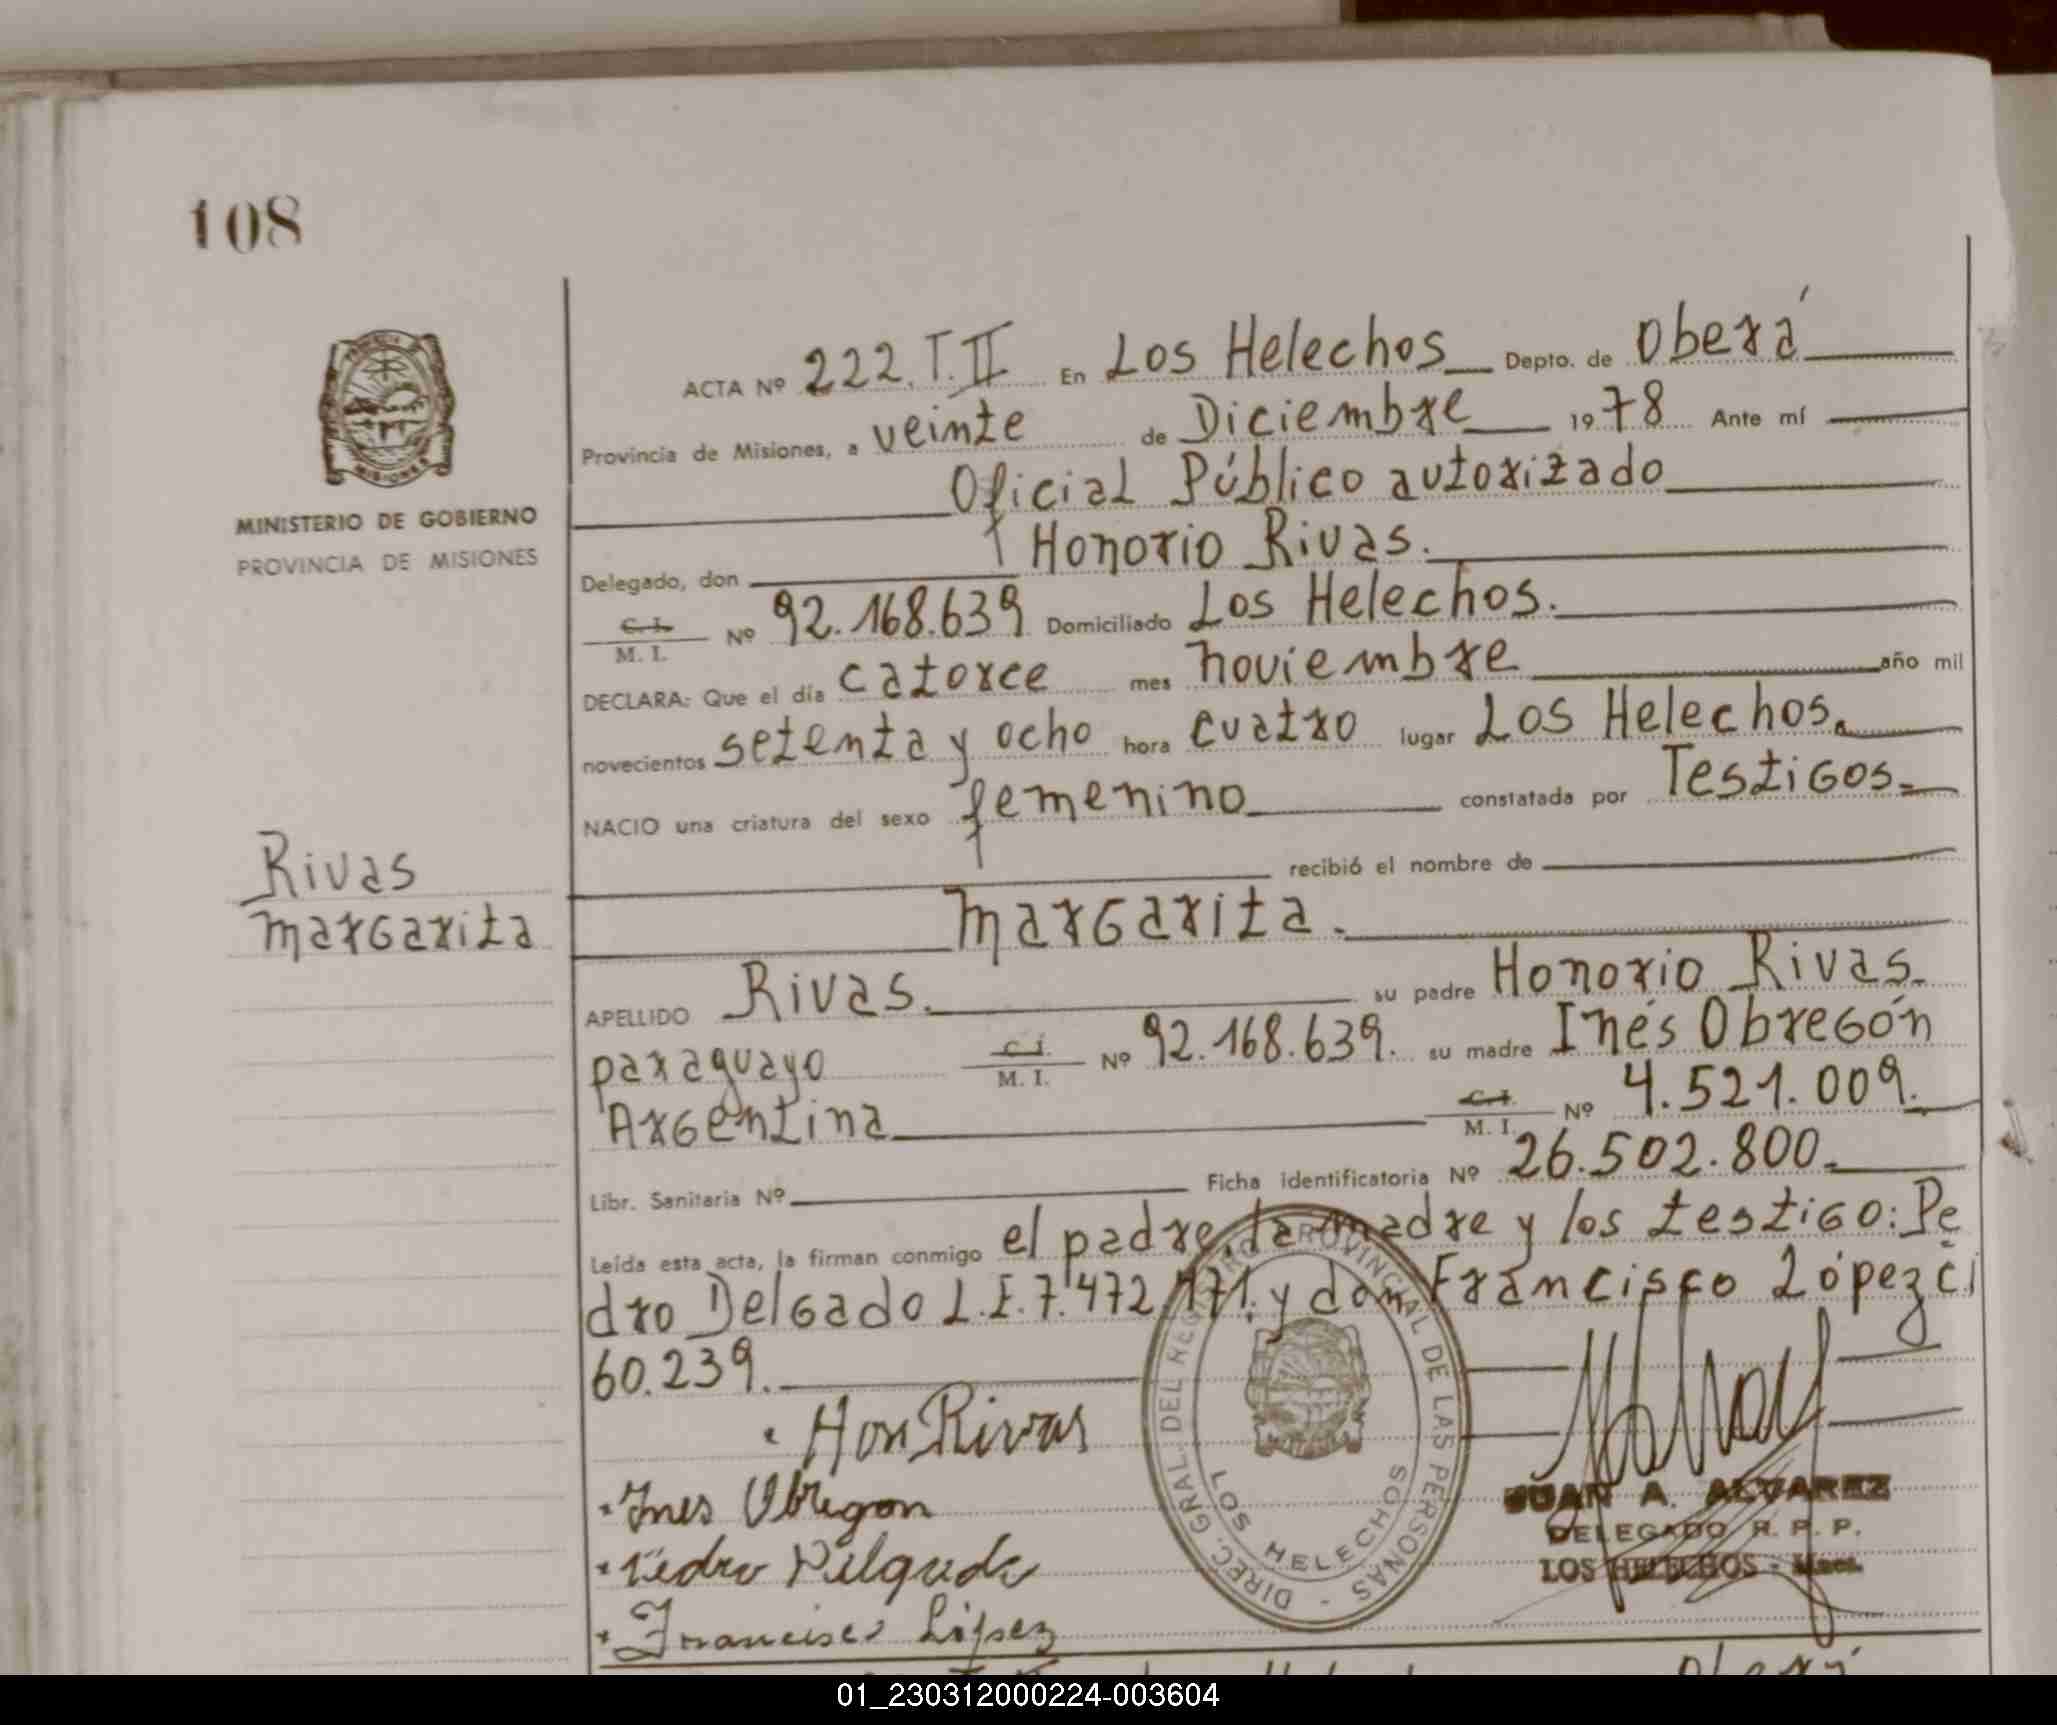 108
ACTA Nº 222.T.II En Los Helechos Depto. de Oberá
Provincia de Misiones, a veinte de Diciembre 1978 Ante mí
Oficial Público autorizado
Delegado, don Honorio Rivas.
C.I. M. I. Nº 92.168.639 Domiciliado Los Helechos.
DECLARA: Que el día catorce mes noviembre año mil
novecientos setenta y ocho hora cuatro lugar Los Helechos.
NACIO una criatura del sexo femenino constatada por Testigos.
recibió el nombre de
Margarita.
APELLIDO Rivas. su padre Honorio Rivas.
paraguayo C.I. M. I. Nº 92.168.639. su madre Inés Obregón
Argentina C.I. M. I. Nº 4.521.009.
Libr. Sanitaria Nº Ficha identificatoria Nº 26.502.800.
Leída esta acta, la firman conmigo el padre, la madre y los testigo: Pe
dro Delgado L.E. 7.472.171. y don Francisco López C.I
60.239.
Hon Rivas
Ines Obregon
Pedro Delgado
Francisco López
MINISTERIO DE GOBIERNO
PROVINCIA DE MISIONES
Rivas
Margarita
MISIONES
DIREC. GRAL. DEL REGISTRO PROVINCIAL DE LAS PERSONAS -
LOS HELECHOS
JUAN A. ALVAREZ
DELEGADO R. P. P.
LOS HELECHOS - Mnes.
01_230312000224-003604